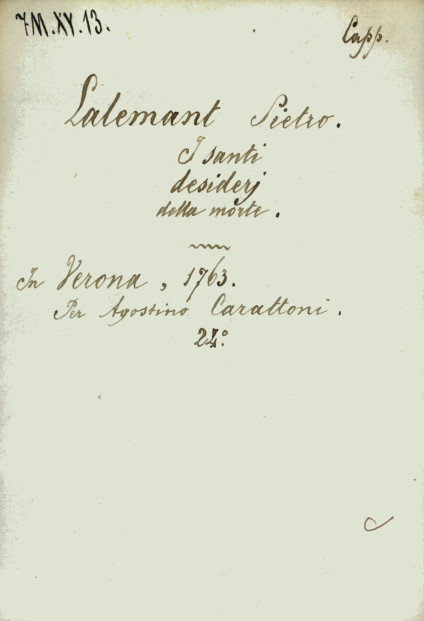 7M.XV.13.
Capp.
Lalemant Pietro.
I santi
desiderj
della morte.
In Verona, 1763.
Per Agostino Carattoni.
24°.